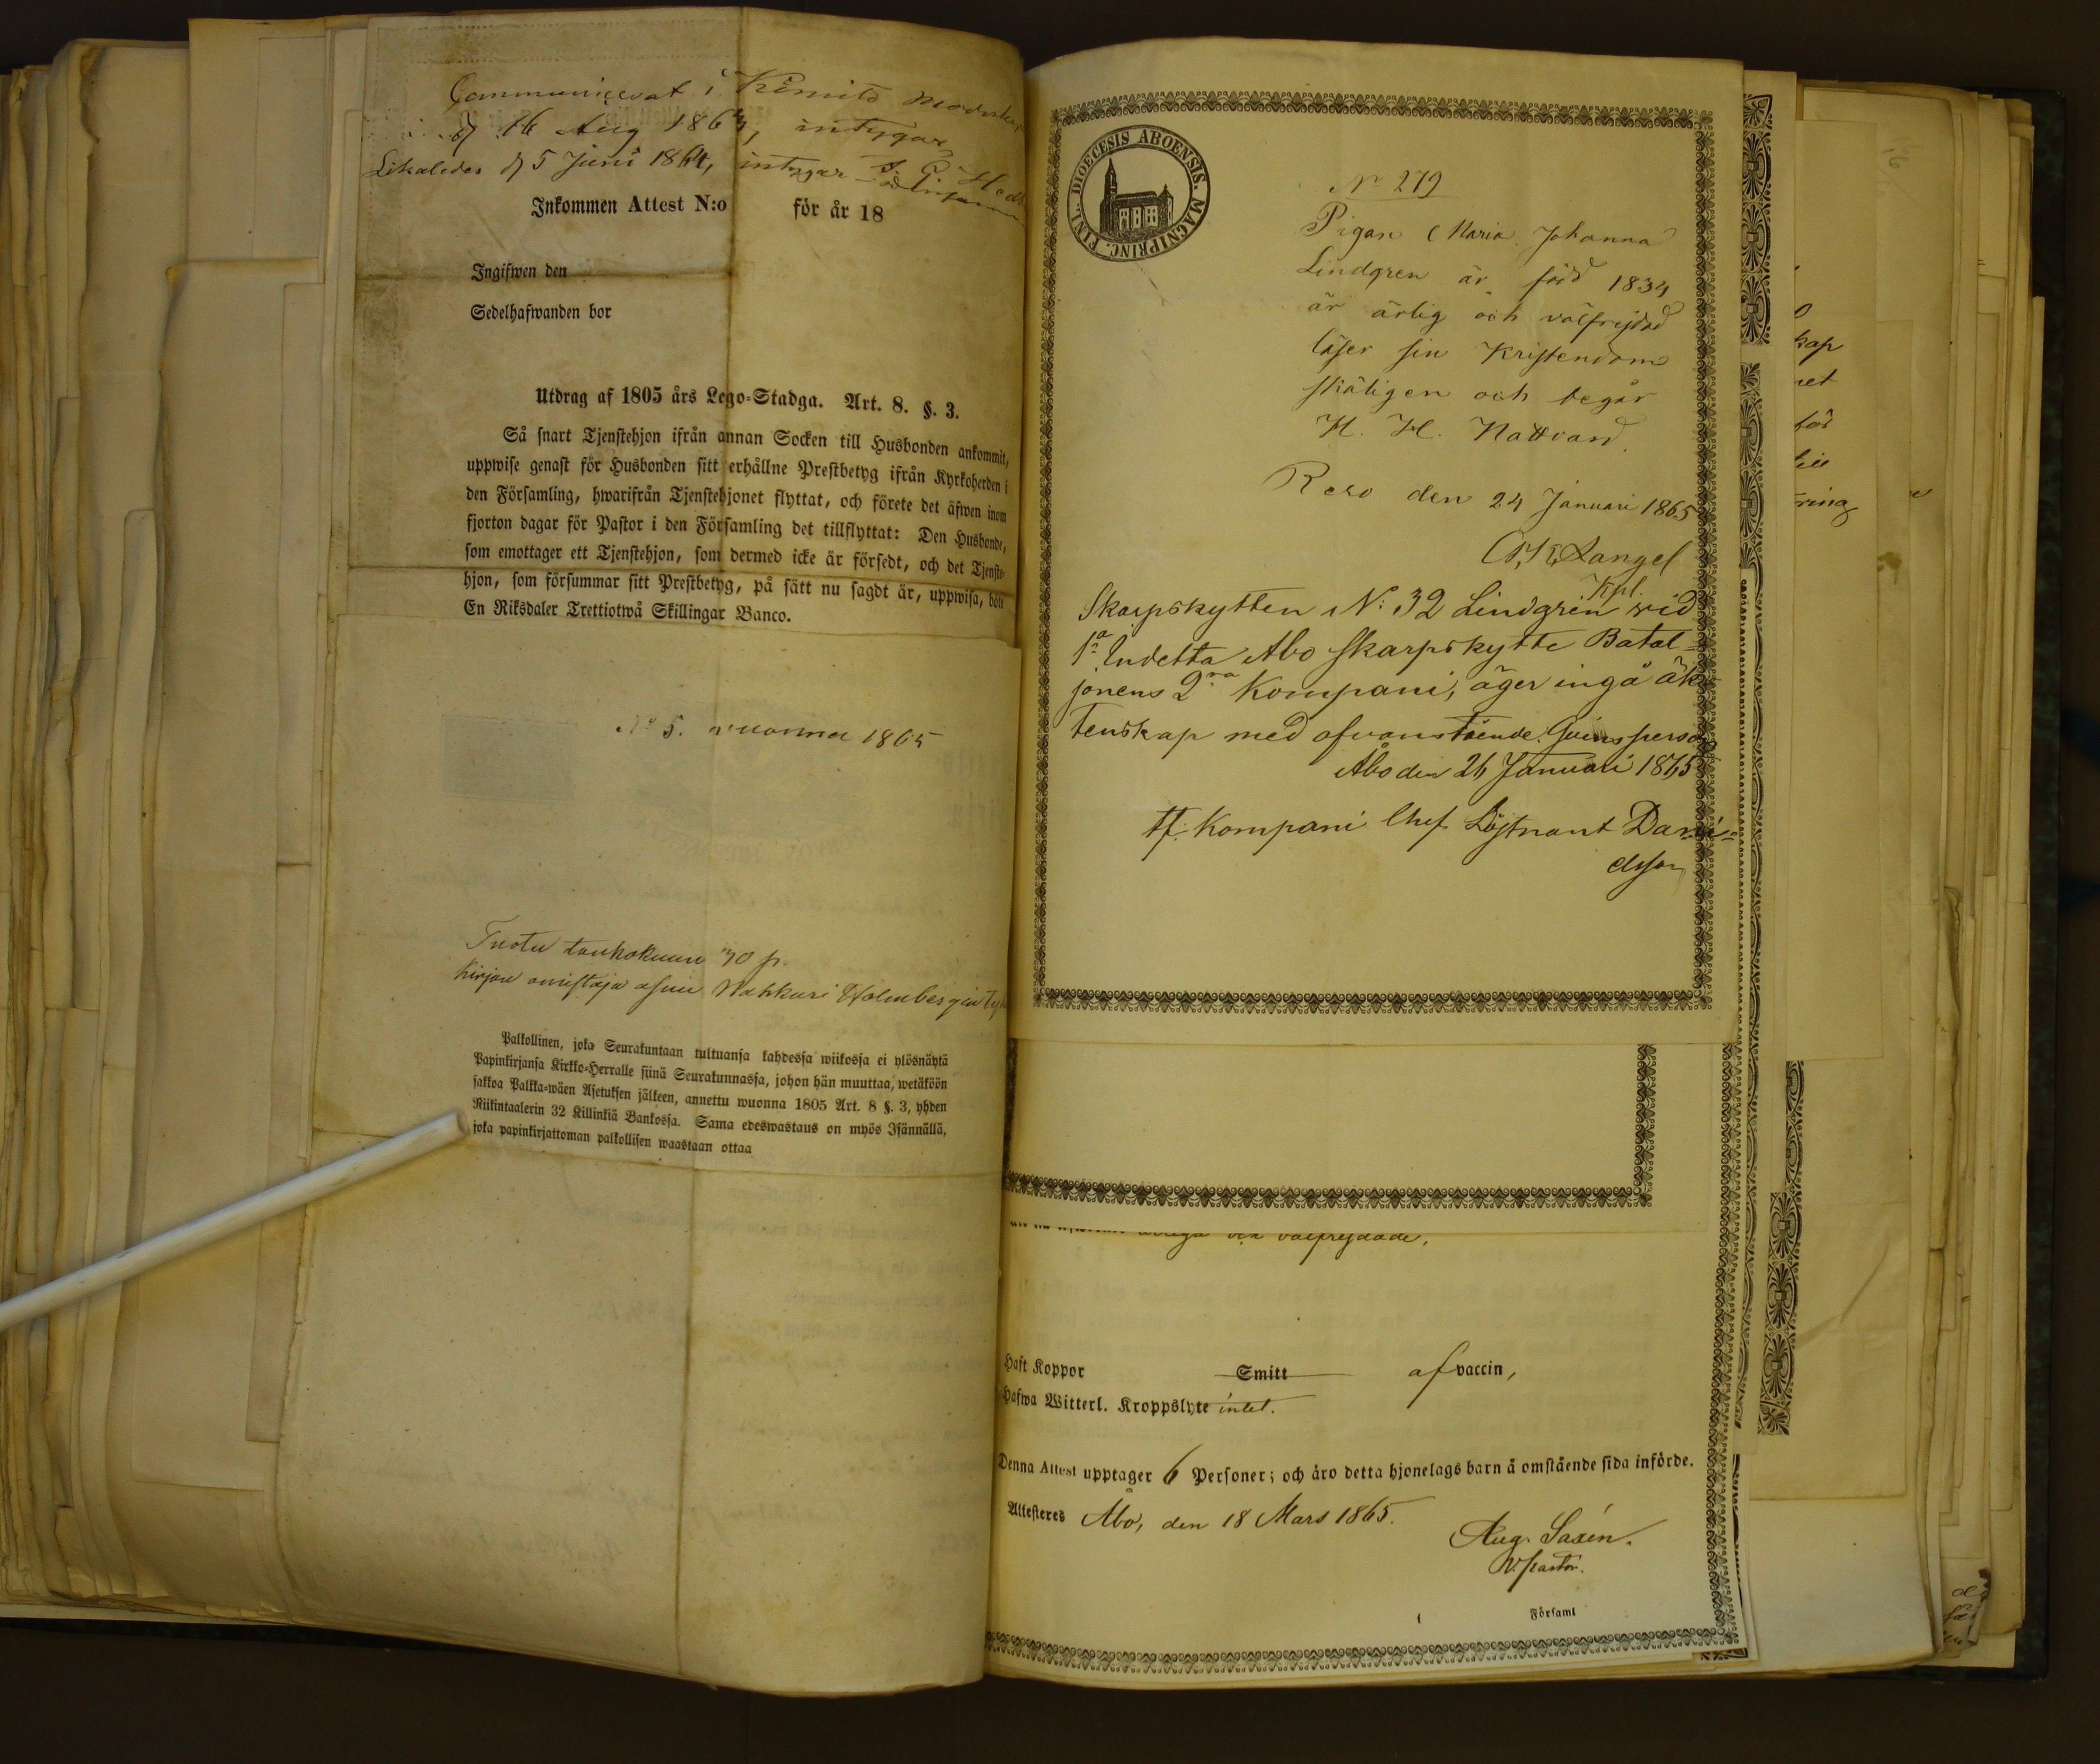 Communicerat i Kimito
d 16 Aug 1863, intygar
Likaledes d 5 Juni 1864, intygar
Inkommen Attest N:o för år 18
Ingifwen den
Sedelhafwanden bor
Utdrag af 1805 års Lego-Stadga. Art. 8. §. 3.
Så snart Tjenstehjon ifrån annan Socken till Husbonden ankommit,
uppwise genast för Husbonden sitt erhållne Prestbetyg ifrån Kyrkoherden i
den Församling, hwarifrån Tjenstehjonet flyttat, och förete det äfwen inom
fjorton dagar för Pastor i den Församling det tillflyttat: Den Husbonde,
som emottager ett Tjenstehjon, som dermed icke är försedt, och det Tjenste-
hjon, som försummar sitt Prestbetyg, på sätt nu sagdt är, uppwisa, böte
En Riksdaler Trettiotwå Skillingar Banco.
No 5. vuonna 1865
Tuotu toukokuun 30 p.
Kirjan omistaja asuu Nahkuri Holmbergin
Palkollinen, joka Seurakuntaan tultuansa kahdessa wiikossa ei ylösnäytä
Papinkirjansa Kirkko-Herralle siinä Seurakunnassa, johon hän muuttaa, wetäköön
sakkoa Palkka-wäen Asetuksen jälkeen, annettu wuonna 1805 Art. 8 §. 3, yhden
Riikintaalerin 32 Killinkiä Bankossa. Sama edeswastaus on myös Isännällä,
joka papinkirjattoman palkollisen waastaan ottaa
DIOECESIS ABOENSIS. MAGNIPRINC. FINL.
No 279
Pigan Maria Johanna
Lindgren är född 1834
är ärlig och välfrejdad
läser sin Kristendom
skäligen och begår
H. H. Nattvard.
Reso den 24 Januari 1865
Langel
Kpl.
Skarpskytten N: 32 Lindgrén vid
1a Indelta Åbo Skarpskytte Batal=
jonens 2ra Kompani, äger ingå äk=
tenskap med ofvanstående Qvinsperson
Åbo den 26 Januari 1865
tf. Kompani Chef Löjtnant Dani=
elsson
ärliga och välfrejdade.
Haft Koppor Smitt af vaccin,
Hafwa Witterl. Kroppslyte intet.
Denna Attest upptager 6 Personer; och äro detta hjonelags barn å omstående sida införde.
Attesteres Åbo, den 18 Mars 1865.
Aug. Saxén.
V. pastor.
i Församl
kap
ret
för
till